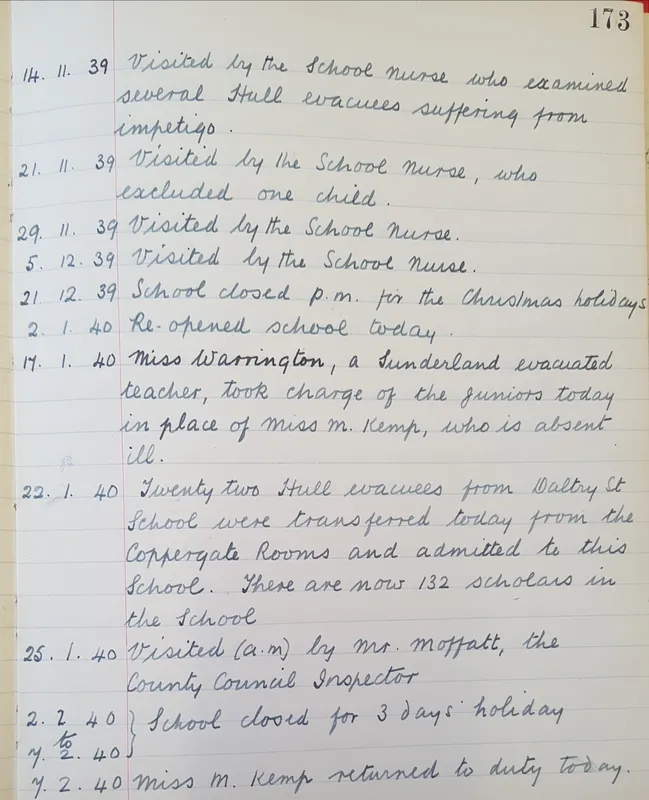 173
14. 11. 39 Visited by the School Nurse who examined
several Hull evacuees suffering from
impetigo.
21. 11. 39 Visited by the School Nurse, who
excluded one child.
29. 11. 39 Visited by the School Nurse.
5. 12. 39 Visited by the School Nurse.
21 12. 39 School closed p.m. for the Christmas holidays
2. 1. 40 Re-opened school today.
17. 1. 40 Miss Warrington, a Sunderland evacuated
teacher, took charge of the Juniors today
in place of Miss M. Kemp, who is absent
ill.
22. 1. 40 Twenty two Hull evacuees from Daltry St
School were transferred today from the
Coppergate Rooms and admitted to this
School. There are now 132 scholars in
the School
25. 1. 40 Visited (a.m) by Mr. Moffatt, the
County Council Inspector
2. 2 40 } School closed for 3 days' holiday
to
7. 2. 40
7. 2. 40 Miss M. Kemp returned to duty today.